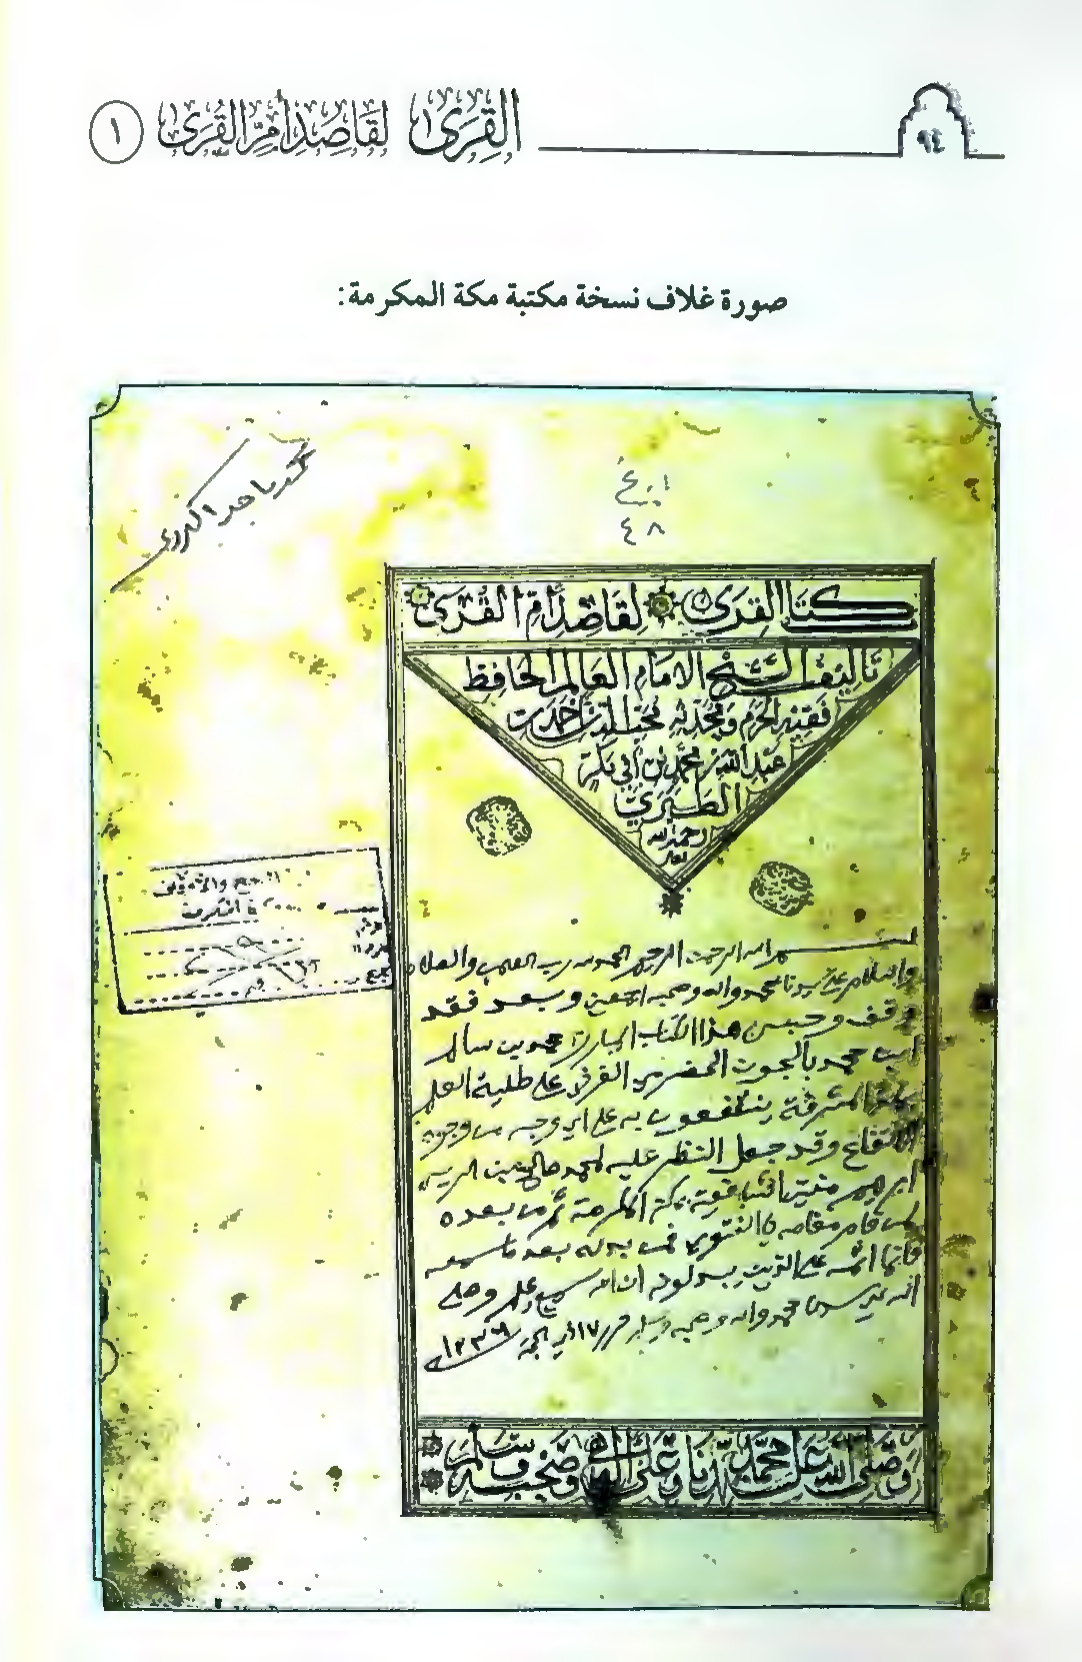 ٩٤
القِرَى لقَاصِدِ أُمِّ القُرَى ١
صورة غلاف نسخة مكتبة مكة المكرمة:
٤٨
كتاب القرى لقاصد أم القرى
تأليف الشيخ الامام العالم الحافظ
فقيه الحرم ومحدثه محب الدين أحمد بن
عبد الله بن محمد بن أبي بكر
الطبري
رحمه الله
بسم الله الرحمن الرحيم الحمد لله رب العلمين والصلاة
والسلام على سيدنا محمد واله وصحبه اجمعين وبعد فقد
وقف وحبس هذا الكتاب المبارك محمد بن سالم
ابن محمد الحضرمي على طلبة العلم
بمكة المشرفة ينتفعون به على اي وجه من وجوه
الانتفاع وقد جعل النظر عليه لمحمد صالح بن الريس
ابرهيم مفتي الشافعية بمكة المكرمة ثم من بعده
لمن قام مقامه في الفتوى فمن بدله بعد ما سمعه
فانما اثمه على الذين يبدلونه ان الله سميع عليم وصلى
الله على سيدنا محمد واله وصحبه وسلم ١٧ الحجة
وصلى الله على سيدنا محمد وعلى اله وصحبه وسلم